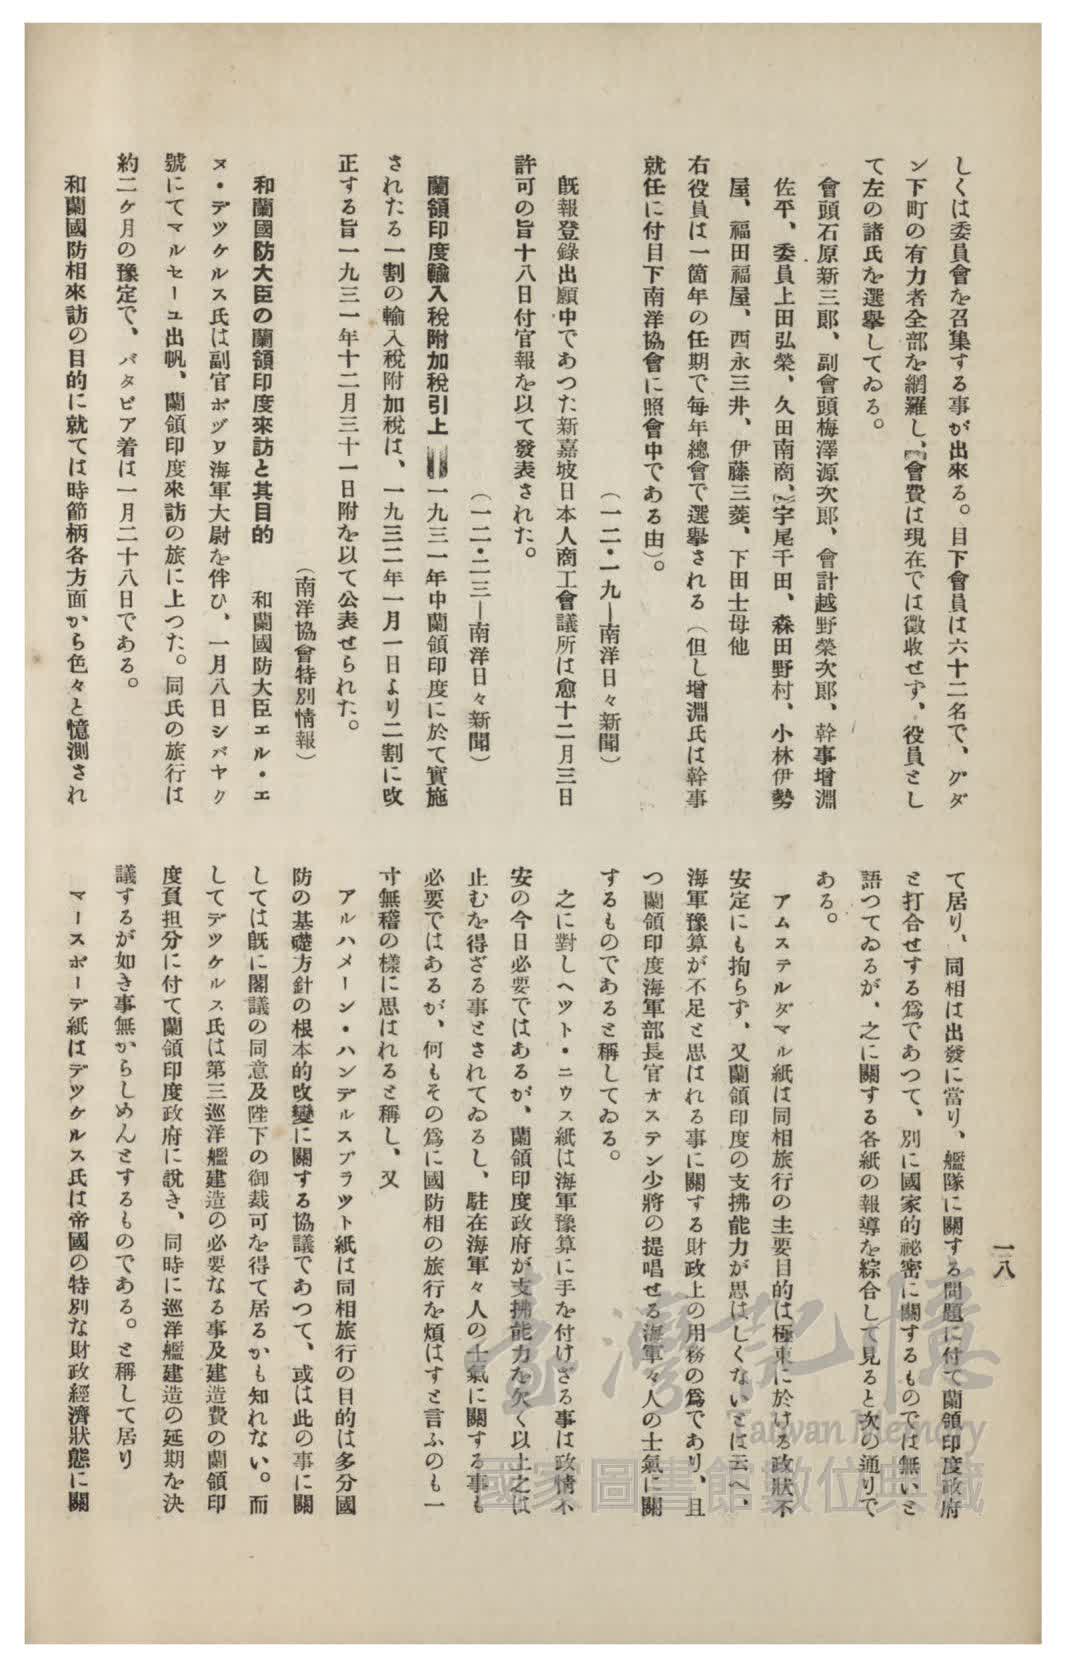 しくは委員會を召集する事が出來る。目下會員は六十二名で、グダ
ン下町の有力者全部を網羅し、會費は現在では徵收せず、役員とし
て左の諸氏を選擧してゐる。
會頭石原新三郞、副會頭梅澤源次郞、會計越野榮次郞、幹事增淵
佐平、委員上田弘榮、久田南商、宇尾千田、森田野村、小林伊勢
屋、福田福屋、西永三井、伊藤三菱、下田士母他
右役員は一箇年の任期で每年總會で選擧される（但し增淵氏は幹事
就任に付目下南洋協會に照會中である由）。
（一二・一九―南洋日々新聞）
旣報登錄出願中であつた新嘉坡日本人商工會議所は愈十二月三日
許可の旨十八日付官報を以て發表された。
（一二・二三―南洋日々新聞）
蘭領印度輸入稅附加稅引上 一九三一年中蘭領印度に於て實施
されたる一割の輸入稅附加稅は、一九三二年一月一日より二割に改
正する旨一九三一年十二月三十一日附を以て公表せられた。
（南洋協會特別情報）
和蘭國防大臣の蘭領印度來訪と其目的 和蘭國防大臣エル・エ
ヌ・デツケルス氏は副官ボヅワ海軍大尉を伴ひ、一月八日シバヤク
號にてマルセーユ出帆、蘭領印度來訪の旅に上つた。同氏の旅行は
約二ケ月の豫定で、バタビア着は一月二十八日である。
和蘭國防相來訪の目的に就ては時節柄各方面から色々と憶測され
て居り、同相は出發に當り、艦隊に關する問題に付て蘭領印度政府
と打合せする爲であつて、別に國家的祕密に關するものでは無いと
語つてゐるが、之に關する各紙の報導を綜合して見ると次の通りで
ある。
アムステルダマル紙は同相旅行の主要目的は極東に於ける政狀不
安定にも拘らず、又蘭領印度の支拂能力が思はしくないとは云へ、
海軍豫算が不足と思はれる事に關する財政上の用務の爲であり、且
つ蘭領印度海軍部長官オステン少將の提唱せる海軍々人の士氣に關
するものであると稱してゐる。
之に對しヘツト・ニウス紙は海軍豫算に手を付けざる事は政情不
安の今日必要ではあるが、蘭領印度政府が支拂能力を欠く以上之は
止むを得ざる事とされてゐるし、駐在海軍々人の士氣に關する事も
必要ではあるが、何もその爲に國防相の旅行を煩はすと言ふのも一
寸無稽の樣に思はれると稱し、又
アルハメーン・ハンデルスブラツト紙は同相旅行の目的は多分國
防の基礎方針の根本的改變に關する協議であつて、或は此の事に關
しては旣に閣議の同意及陛下の御裁可を得て居るかも知れない。而
してデツケルス氏は第三巡洋艦建造の必要なる事及建造費の蘭領印
度負担分に付て蘭領印度政府に說き、同時に巡洋艦建造の延期を決
議するが如き事無からしめんとするものである。と稱して居り
マースボーデ紙はデツケルス氏は帝國の特別な財政經濟狀態に關
一八
臺灣記憶
Taiwan Memory
國家圖書館數位典藏